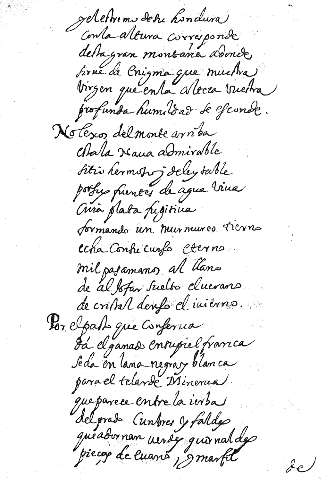 y el estremo de su hondura
con la altura corresponde
desta gran montaña adonde
sirue de Enigma que muestra
Virgen que en la alteza vuestra
profunda humildad se esconde.
No lexos del monte arriba
esta la Naua admirable
sitio hermoso y deleytable
por seys fuentes de agua viua
Cuia plata fugitiua
formando un murmureo tierno
echa con su curso eterno
mil pasamanos al llano
de aljofar suelto el uerano
de cristal denso el inierno.
Por el pasto que conserua
da el ganado en su piel franca
seda en lana negra y blanca
para el telar de Minerua
que parece entre la ierba
del prado Cumbres y faldas
que adornan verdes guirnaldas
pieças de euano, y marfil
de